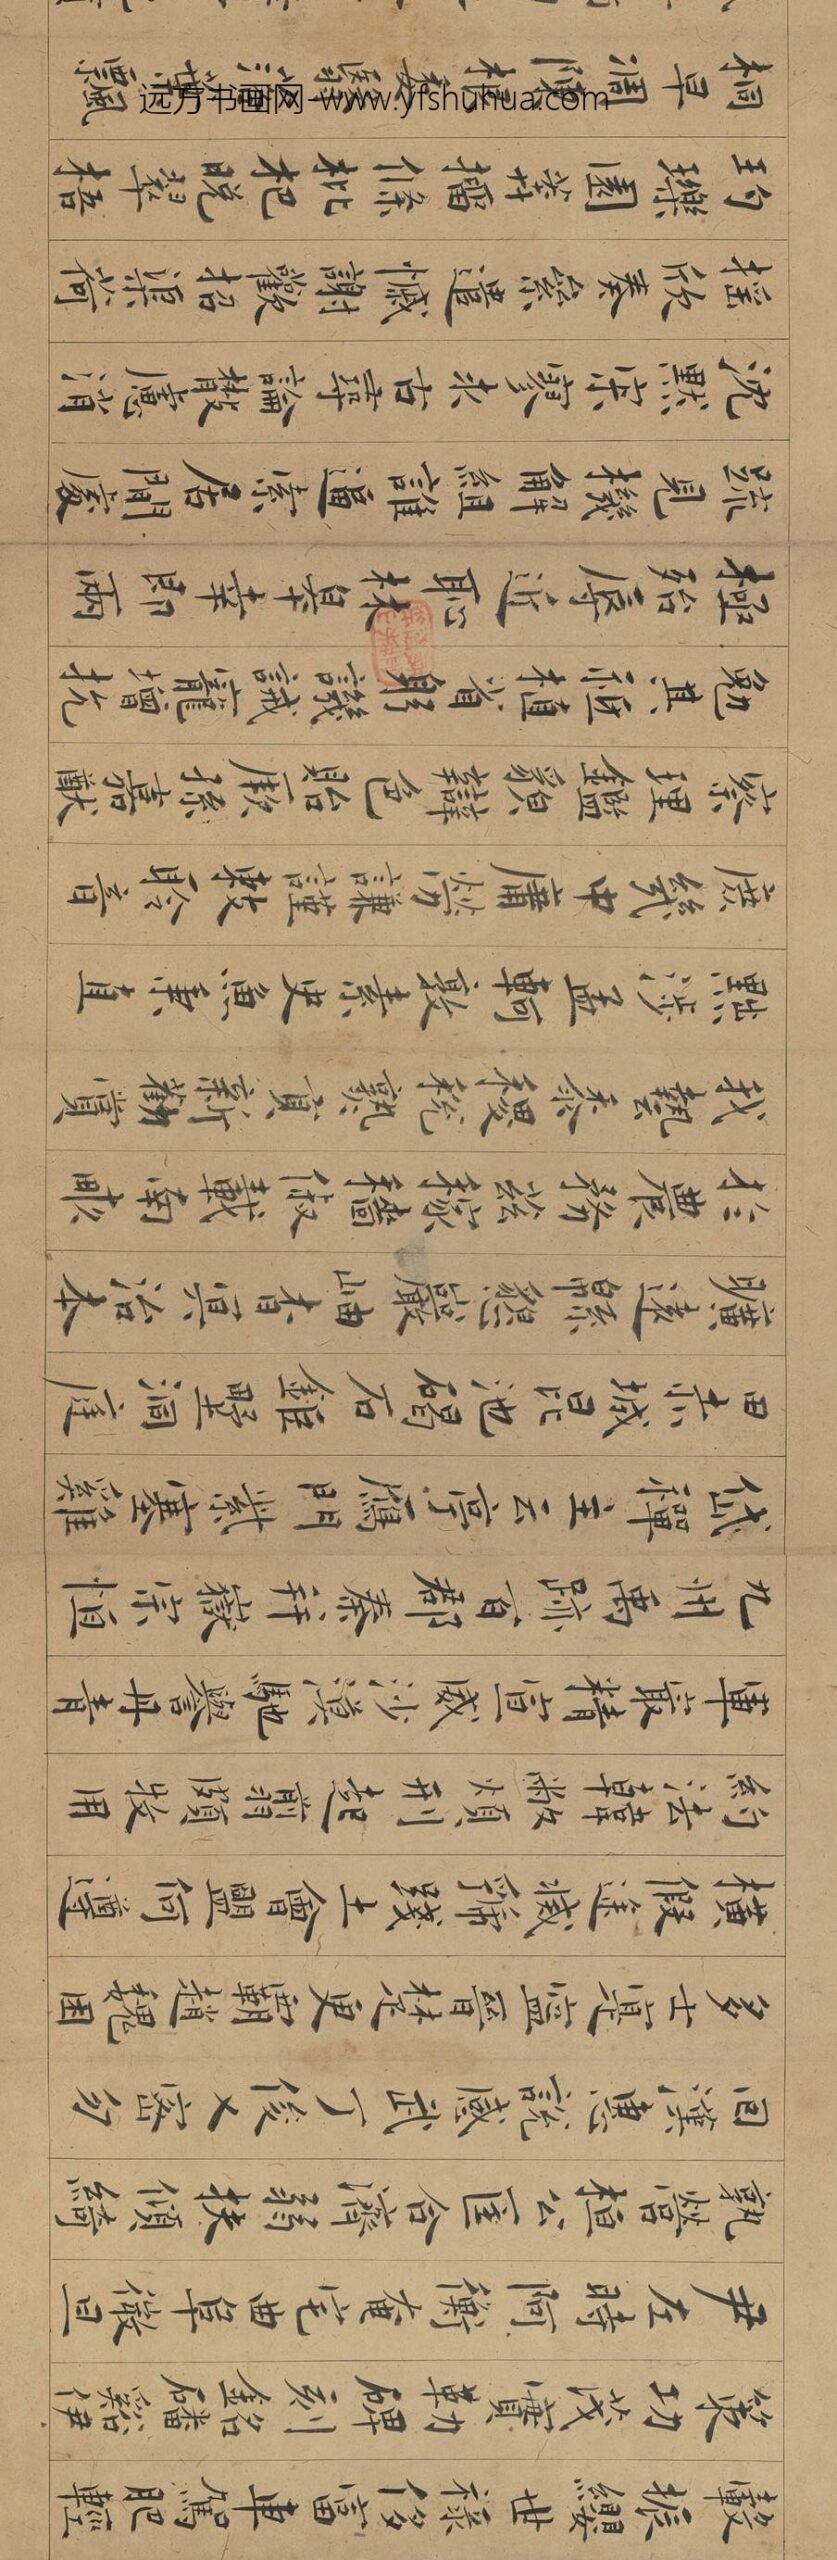 轂振纓世祿侈富車駕肥輕
策功茂實勒碑刻銘磻谿伊
尹左時阿衡奄宅曲阜微旦
孰營桓公匡合濟弱扶傾綺
回漢惠說感武丁俊乂密勿
多士寔寍晉楚更霸趙魏困
橫假途滅虢踐土會盟何遵
約法韓弊煩刑起翦頗牧用
軍最精宣威沙漠馳譽丹青
九州禹跡百郡秦并嶽宗恒
岱禪主云亭鴈門紫塞雞
田赤城昆池碣石鉅野洞庭
曠遠緜邈巖岫杳冥治本
於農務茲稼穡俶載南畝
我藝黍稷稅熟貢新勸賞
黜陟孟軻敦素史魚秉直
庶幾中庸勞謙謹敕聆音
察理鑑貌辯色貽厥孫嘉猷
勉其祗植省躬譏誡寵增抗
極殆辱近恥林皋幸即兩
疏見機解組誰逼索居閒處
沈默寂寥求古尋論散慮消
搖欣奏累遣慼謝歡招渠荷
玓瓅園莽擂條枇杷晚翠梧
桐早凋陳根委翳落葉飄
远方书画网-www.yfshuhua.com